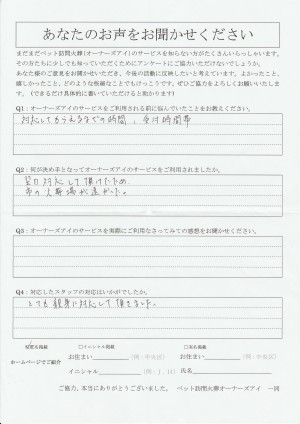 あなたのお声をお聞かせください
まだまだペット訪問火葬(オーナーズアイ)のサービスを知らない方がたくさんいらっしゃいます。
その方たちに少しでも知っていただくためにアンケートにご協力いただけないでしょうか。
あなた様のご意見をお聞かせいただき、今後の活動に反映したいと考えています。よかったこと、
嬉しかったこと、どのような些細なことでもけっこうです。ぜひご協力をよろしくお願いいたします。(できるだけ具体的に書いていただけると助かります)
Q1:オーナーズアイのサービスをご利用される前に悩んでいたことをお教えください。
対応してもらえるまでの時間、受け時間帯
Q2:何が決め手となってオーナーズアイのサービスをご利用されましたか。
翌日対応して頂けたため。
市の火葬場が遠かった。
Q3:オーナーズアイのサービスを実際にご利用なさってみての感想をお聞かせください。
Q4:対応したスタッフの対応はいかがでしたか。
とても親身に対応して頂きました。
ホームページでご紹介
□イニシャル掲載
□実名掲載
お住まい
(例:中央区)
お住まい
(例:中央区)
イニシャル
(例:I.H)
氏名
ご協力、本当にありがとうございました。 ペット訪問火葬オーナーズアイ 一同